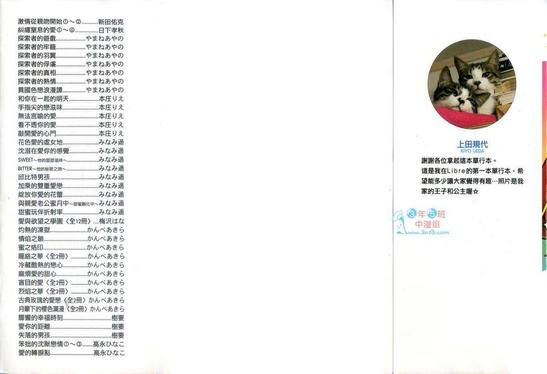 激情從親吻開始①～②………新田佑克
糾纏窒息的愛①～②………日下孝秋
探索者的遊戲………やまねあやの
探索者的牢籠………やまねあやの
探索者的羽翼………やまねあやの
探索者的俘虜………やまねあやの
探索者的真相………やまねあやの
探索者的熱情………やまねあやの
異國色戀浪漫譚………やまねあやの
和你在一起的明天………本庄りえ
手指尖的戀滋味………本庄りえ
無法言喻的愛………本庄りえ
看不透你的愛………本庄りえ
敲開愛的心門………本庄りえ
花色愛的處女地………みなみ遥
沈溺在愛你的感覺………みなみ遥
SWEET～他的甜蜜滋味～………みなみ遥
BITTER～他的秘密之戀～………みなみ遥
邱比特男孩………みなみ遥
加樂的雙重愛戀………みなみ遥
綻放你愛的花蕾………みなみ遥
與親愛老公蜜月中～甜蜜融化中～みなみ遥
甜蜜玩伴折射率………みなみ遥
愛與欲望之學園〈全12冊〉…梅沢はな
灼熱的凍獄………かんべあきら
情焰之鎖………かんべあきら
蜜之烙印………かんべあきら
寵綹之華〈全2冊〉………かんべあきら
冷藏酷熱的戀心………かんべあきら
麻煩愛的甜心………かんべあきら
盲目的愛〈全2冊〉………かんべあきら
烈焰之華〈全2冊〉………かんべあきら
古典玫瑰的愛戀〈全2冊〉かんべあきら
月暈下的櫻色瀰漫〈全2冊〉かんべあきら
響響的幸福時刻………樹要
愛你的距離………樹要
失落的男孩………樹要
笨拙的沈默戀情①～③………高永ひなこ
愛的轉捩點………高永ひなこ
上田規代
KIYO UEDA
謝謝各位拿起這本單行本。
這是我在Libre的第一本單行本，希
望能多少讓大家覺得有趣…照片是我
家的王子和公主喔☆
③年⑤班
中漫組